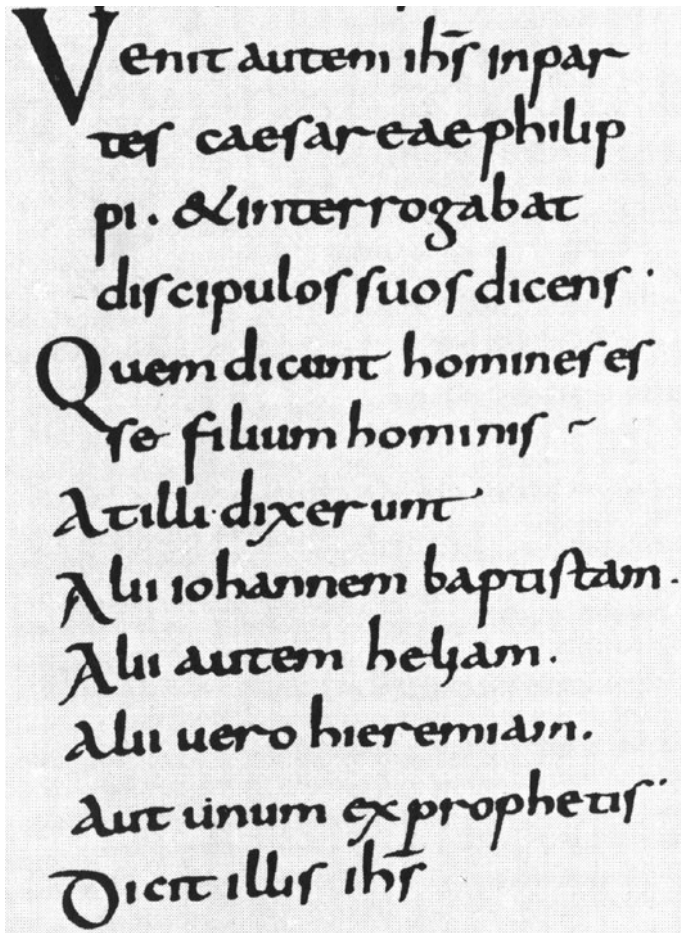 Venit autem ihs̄ inpar
tes caesareaephilip
pi · & interrogabat
discipulos suos dicens ·
Quem dicunt homines es
se filium hominis ~
At illi · dixerunt
Alii iohannem baptistam ·
Alii autem heliam ·
Alii uero hieremiam ·
Aut unum ex prophetis ·
Dicit illis ihs̄